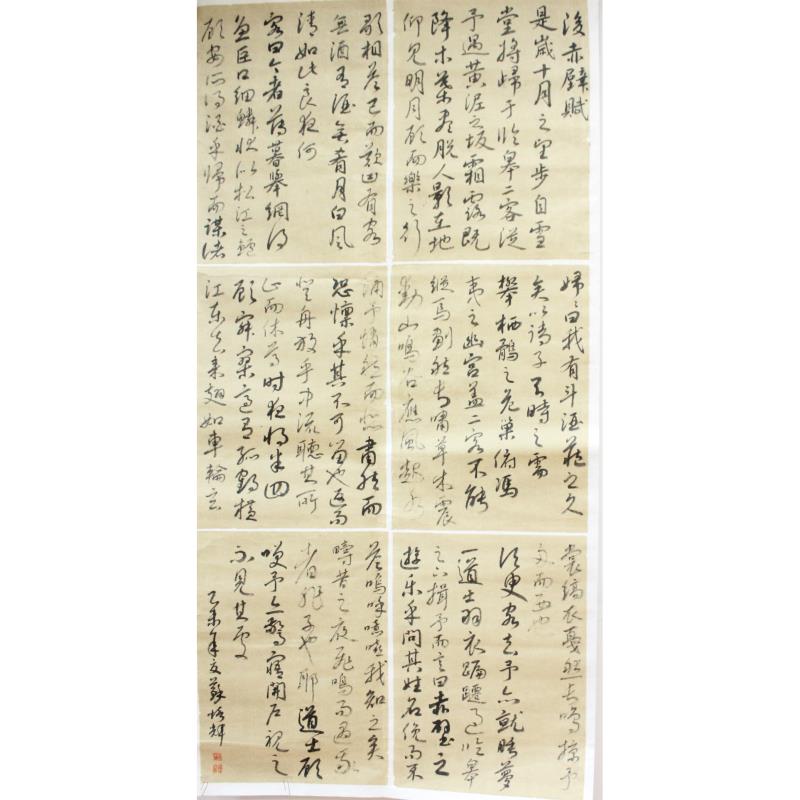 後赤壁賦
是歲十月之望步自雪
堂將歸于臨皋二客從
予過黃泥之坂霜露既
降木葉盡脫人影在地
仰見明月顧而樂之行
歌相答已而歎曰有客
無酒有酒無肴月白風
清如此良夜何
客曰今者薄暮舉網得
魚巨口細鱗狀似松江之鱸
顧安所得酒乎歸而謀諸
婦婦曰我有斗酒藏之久
矣以待子不時之需
攀栖鶻之危巢俯馮
夷之幽宮蓋二客不能
從焉劃然長嘯草木震
動山鳴谷應風起水
涌予悄然而悲肅然而
恐凜乎其不可留也返而
登舟放乎中流聽其所
止而休焉時夜將半四
顧寂寥適有孤鶴橫
江東來翅如車輪玄
裳縞衣戛然長鳴掠予
舟而西也
須臾客去予亦就睡夢
一道士羽衣蹁躚過臨皋
之下揖予而言曰赤壁之
遊樂乎問其姓名俛而不
答嗚呼噫嘻我知之矣
疇昔之夜飛鳴而過我
者非子也耶道士顧
笑予亦驚寤開戶視之
不見其處
乙未年夏蘇輝